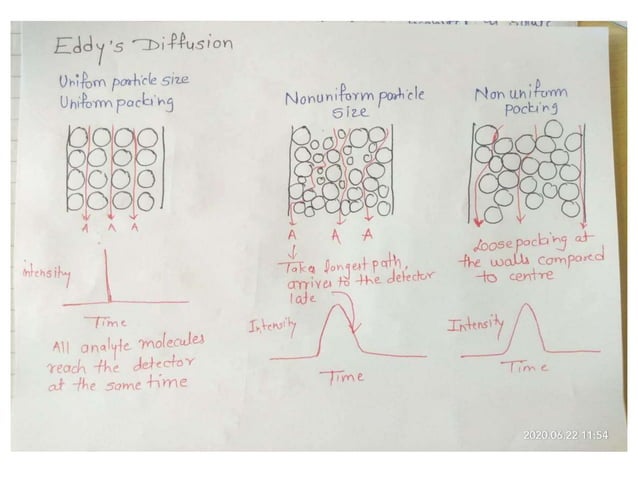 Eddy's Diffusion
Uniform particle size
Uniform packing
Nonuniform particle
size
Non uniform
packing
A A A
A A A
intensity
Time
All analyte molecules
reach the detector
at the same time
Take longest path,
arrives to the detector
late
Intensity
Time
Loose packing at
the walls compared
to centre
Intensity
Time
2020.06.22 11:54